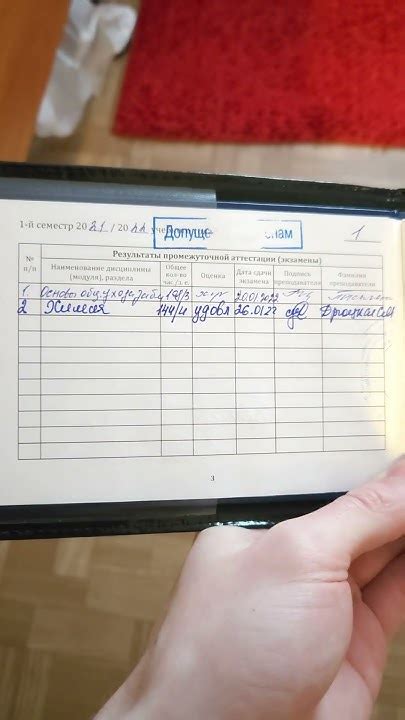 1-й семестр 2021 / 2022 уче
Допуще нам
1
Результаты промежуточной аттестации (экзамены)
№ п/п
Наименование дисциплины (модуля), раздела
Общее кол-во час./з.е.
Оценка
Дата сдачи экзамена
Подпись преподавателя
Фамилия преподавателя
1. Основы общ. ухода за б 108/3 хор 20.01.2022
2 Химия 144/4 удовл 26.0122
3